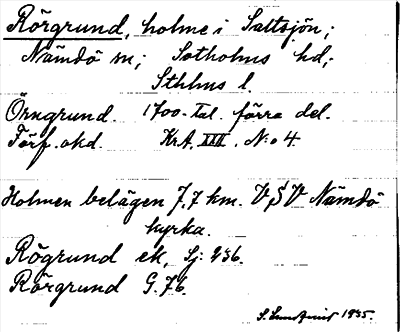 Rörgrund, holme i Saltsjön;
Nämdö sn; Sotholms hd;
Sthlms l.
Örngrund. 1700-tal. förra del.
Förf. okd. KrA, XIII. N:o 4
Holmen belägen 7,7 km. V,SV Nämdö
kyrka.
Rögrund ek, Sj: 236.
Rörgrund G. 76.
S. Lundquist 1935.